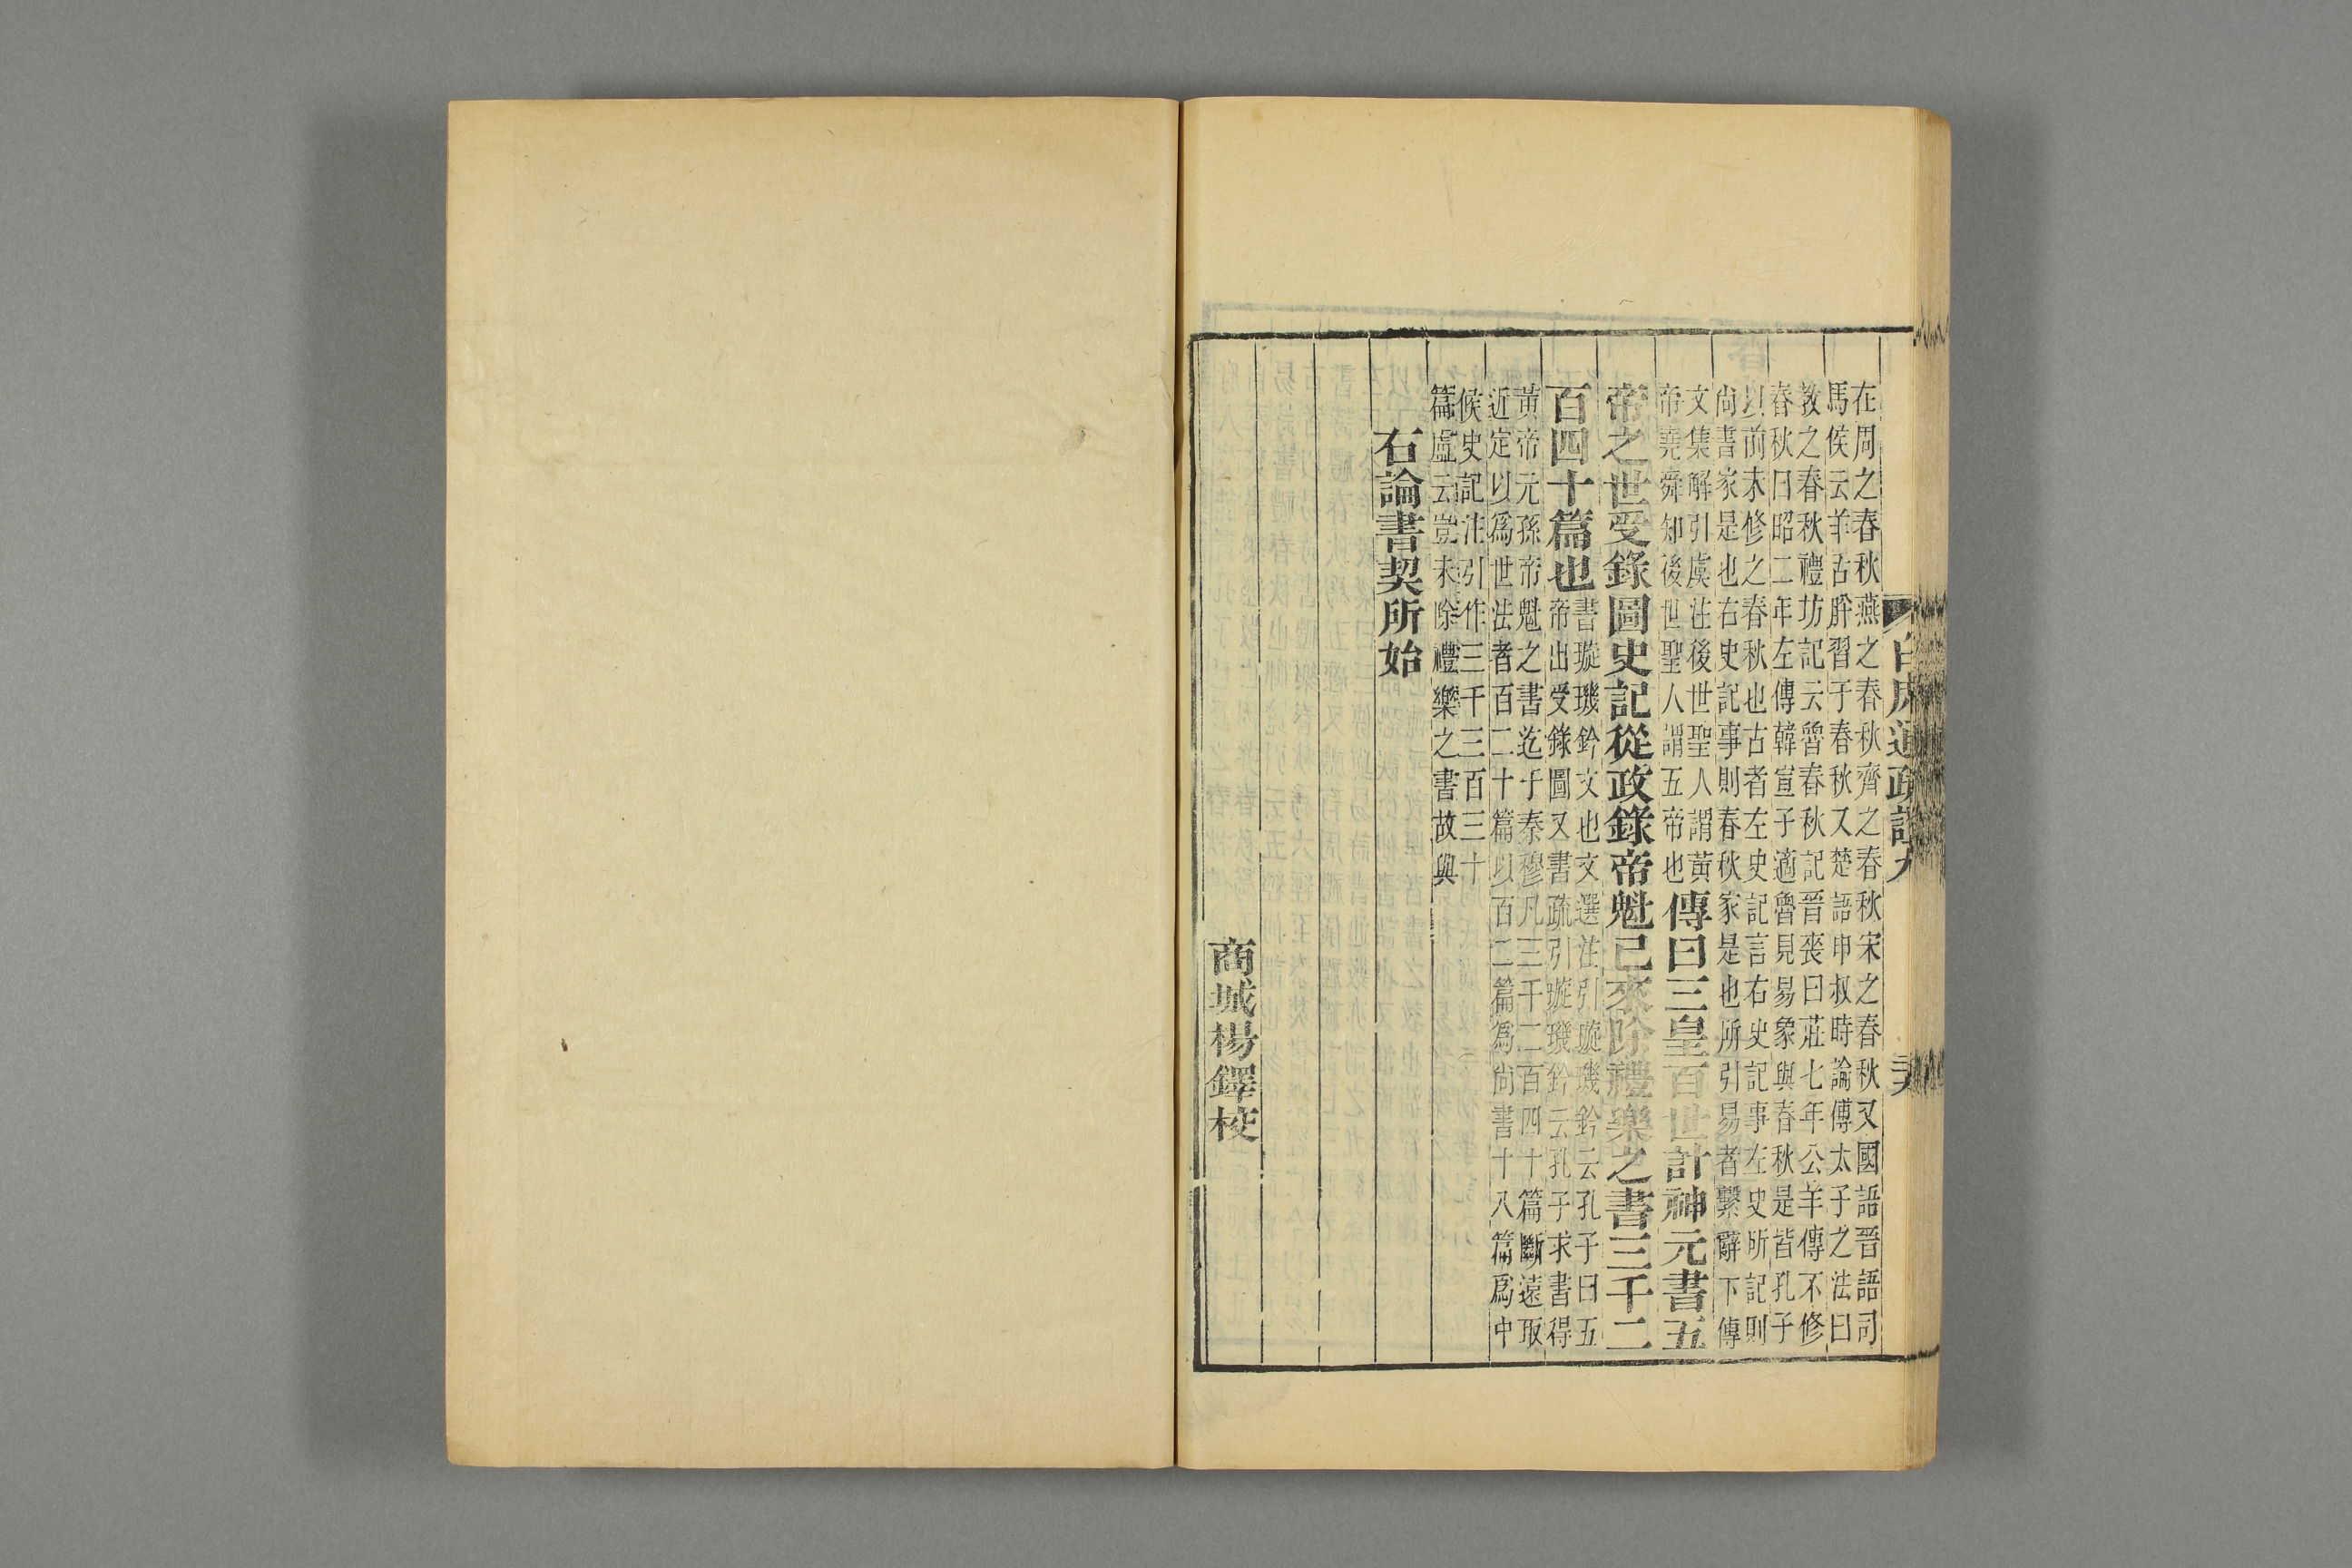 在周之春秋燕之春秋齊之春秋宋之春秋又國語晉語司
馬侯云羊舌肸習于春秋又楚語申叔時論傅太子之法曰
教之春秋禮坊記云魯春秋記晉喪曰莊七年公羊傳不修
春秋曰昭二年左傳韓宣子適魯見易象與春秋是皆孔子
以前未修之春秋也古者左史記言右史記事左史所記則
尙書家是也右史記事則春秋家是也所引易者繫辭下傳
文集解引虞注後世聖人謂黃
帝堯舜知後世聖人謂五帝也
傳曰三皇百世計神元書五
帝之世受錄圖史記從政錄帝魁已來除禮樂之書三千二
百四十篇也
書璇璣鈐文也文選注引璇璣鈐云孔子曰五
帝出受錄圖又書疏引璇璣鈐云孔子求書得
黃帝元孫帝魁之書迄于秦穆凡三千二百四十篇斷遠取
近定以爲世法者百二十篇以百二篇爲尙書十八篇爲中
候史記注引作三千三百三十
篇盧云豈未除禮樂之書故與
右論書契所始
商城楊鐸校
白虎通疏證九